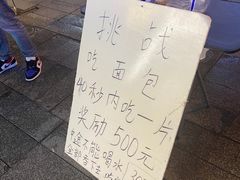 挑战
吃面包
40秒内吃一片
奖励500元
不能喝水